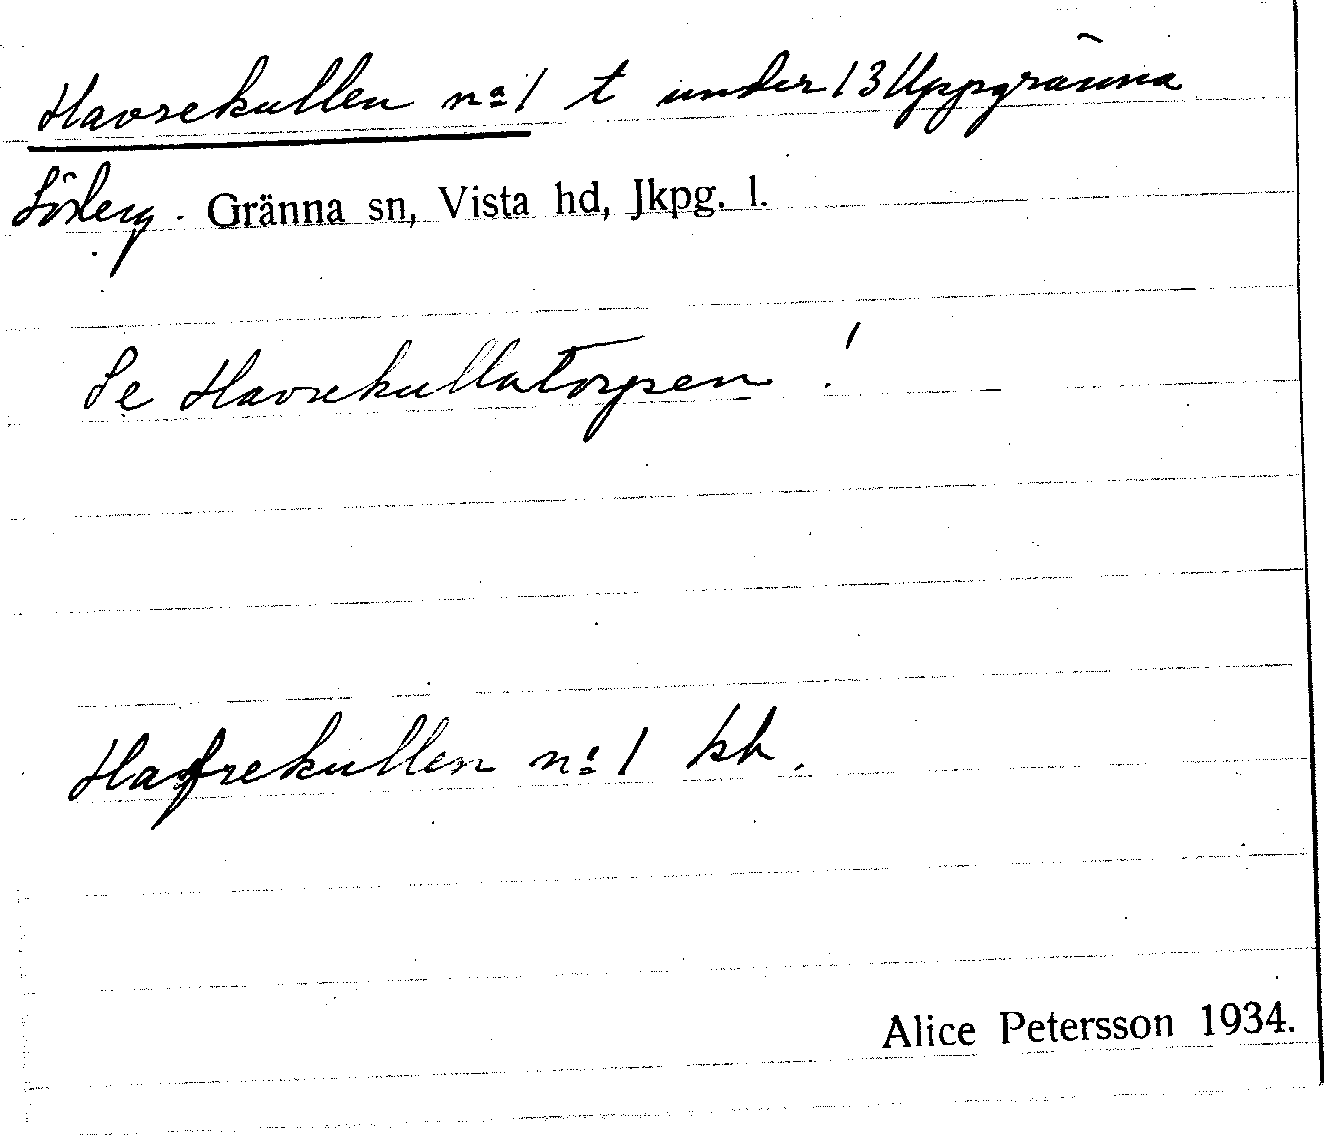 Havrekullen no: 1 t under 13 Uppgränna
Gränna sn, Vista hd, Jkpg. l.
Se Havrekullatorpen !
Hafrekullen n: 1 kb.
Alice Petersson 1934.